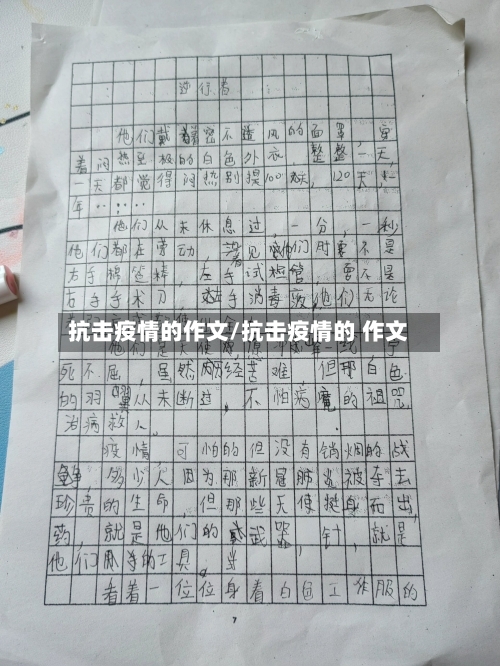 逆行者
他们戴着密不透风的面罩，穿
着闷热至极的白色外衣，整整一天，
一天都觉得闷热别提100天，120天，一
年……
他们从未休息过，一分，一秒
他们都在劳动，见他们时要不是
右手棉签，左手试管，要不是
右手手术刀，左手消毒液他们无论
抗击疫情的作文/抗击疫情的 作文
死不屈，虽然历经苦难，但那白色
的羽翼从未断过，不怕病魔的祖咒，
治病救人。
疫情可怕的但没有销烟的战
多少人因为那新冠肺炎被夺去
珍贵的生命，但那些天使挺身而出，
药，就是他们的武器，针，就是
他们的工具，
看着一位位身着白色工作服的
7